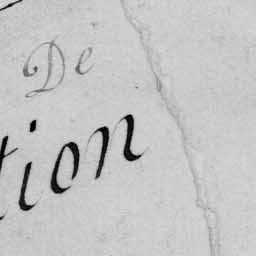 De
tion